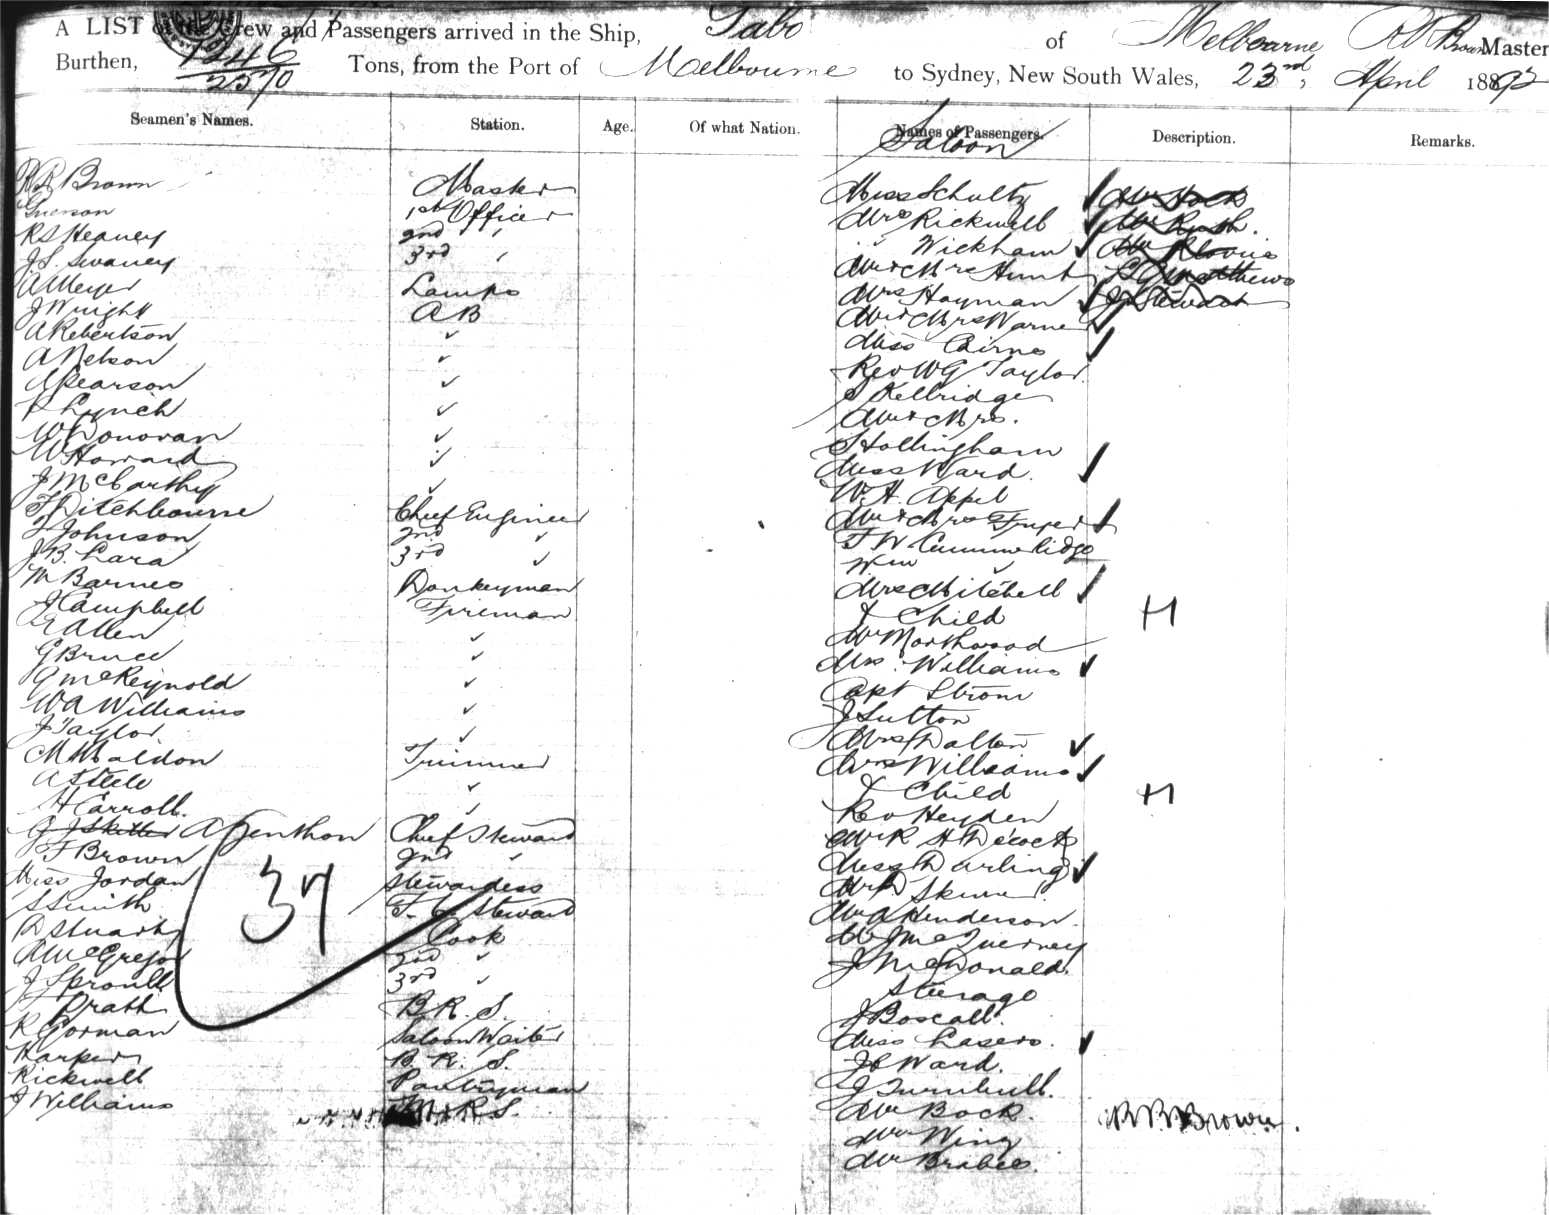 A LIST of the Crew and Passengers arrived in the Ship, of Melbourne R R Brown Master
Burthen, 1246 / 2570 Tons, from the Port of Melbourne to Sydney, New South Wales, 23rd, April 1892
Seamen's Names. Station. Age. Of what Nation. Names of Passengers. Description. Remarks.
Saloon
R R Brown Master
Grierson 1st Officer
R S Heaney 2nd "
J S. Swaney 3rd "
A Meyer Lamps
J Wright A B
A Robertson ✓
A Nelson ✓
Pearson ✓
P Lynch ✓
W Donovan ✓
W Howard ✓
J McCarthy ✓
F Ditchbourne Chief Engineer
T Johnson 2nd ✓
J. B. Lara 3rd ✓
M Barnes Donkeyman
J Campbell Fireman
E Allen ✓
G Bruce ✓
G McReynold ✓
W A Williams ✓
J Taylor ✓
M Maldon Trimmer
A Steele ✓
H Carroll ✓
G J Skitter A Genthon Chief Steward
F Brown 2nd "
Miss Jordan Stewardess
S Smith F. C. Steward
D Stuart Cook
A McGregor 2nd "
J Sproull 3rd "
Pratt B. R. S.
R Gorman Saloon Waiter
Harper B. R. S.
Rickwell Pantryman
J Williams M. R. S.
37
Miss Schultz ✓
Mrs Rickwell ✓ Mr Rush.
" Wickham ✓
Mr & Mrs Hunt Matthews
Mrs Hayman ✓ J Stewart
Mr & Mrs Warner ✓
Miss Cairns ✓
Rev W G Taylor
S Kelbridge
Mr & Mrs.
S Hollingham
Miss Ward. ✓
W. H. Appel
Mr & Mrs Fraser ✓
F W Cummeridge
Wm "
Mrs Mitchell ✓
& Child H
Mr Northwood
Mrs. Williams ✓
Capt Strom
J Sutton
Mrs Dalton ✓
Mrs Williams ✓
& Child H
Rev Heyden
Mr R H Decock
Miss Darling ✓
Mr D Skinner
Mr A Henderson
Mr J McInerney
J McDonald.
Steerage
J Boscall.
Miss Lasero. ✓
J C Ward.
J Turnbull.
Mr Bock R R Brown.
Mr Wing
Mr Brabee.